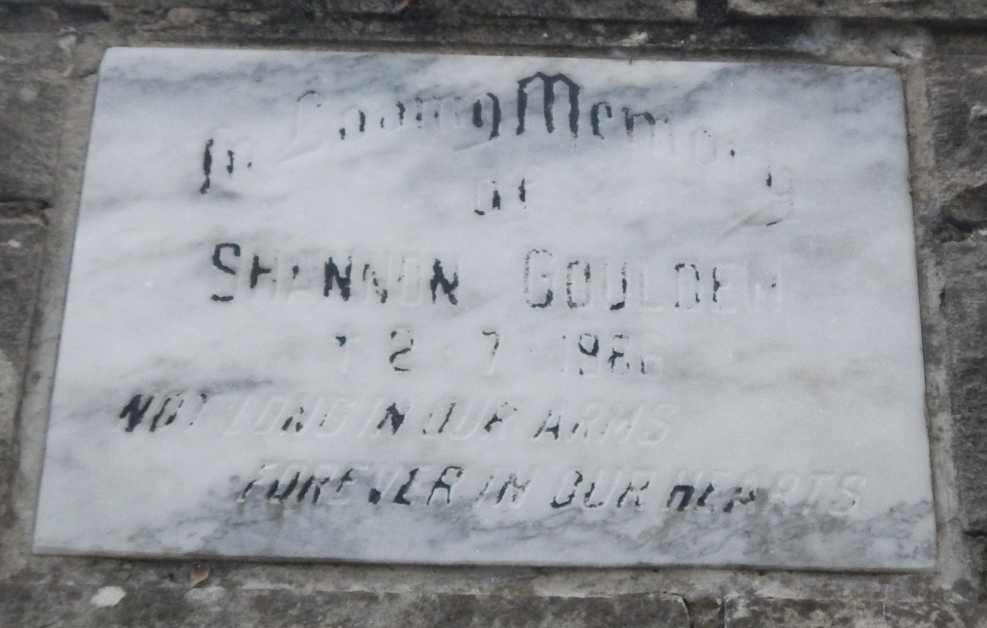 In Loving Memory
of
SHANNON GOULDEN
12 · 7 · 1986
NOT LONG IN OUR ARMS
FOREVER IN OUR HEARTS